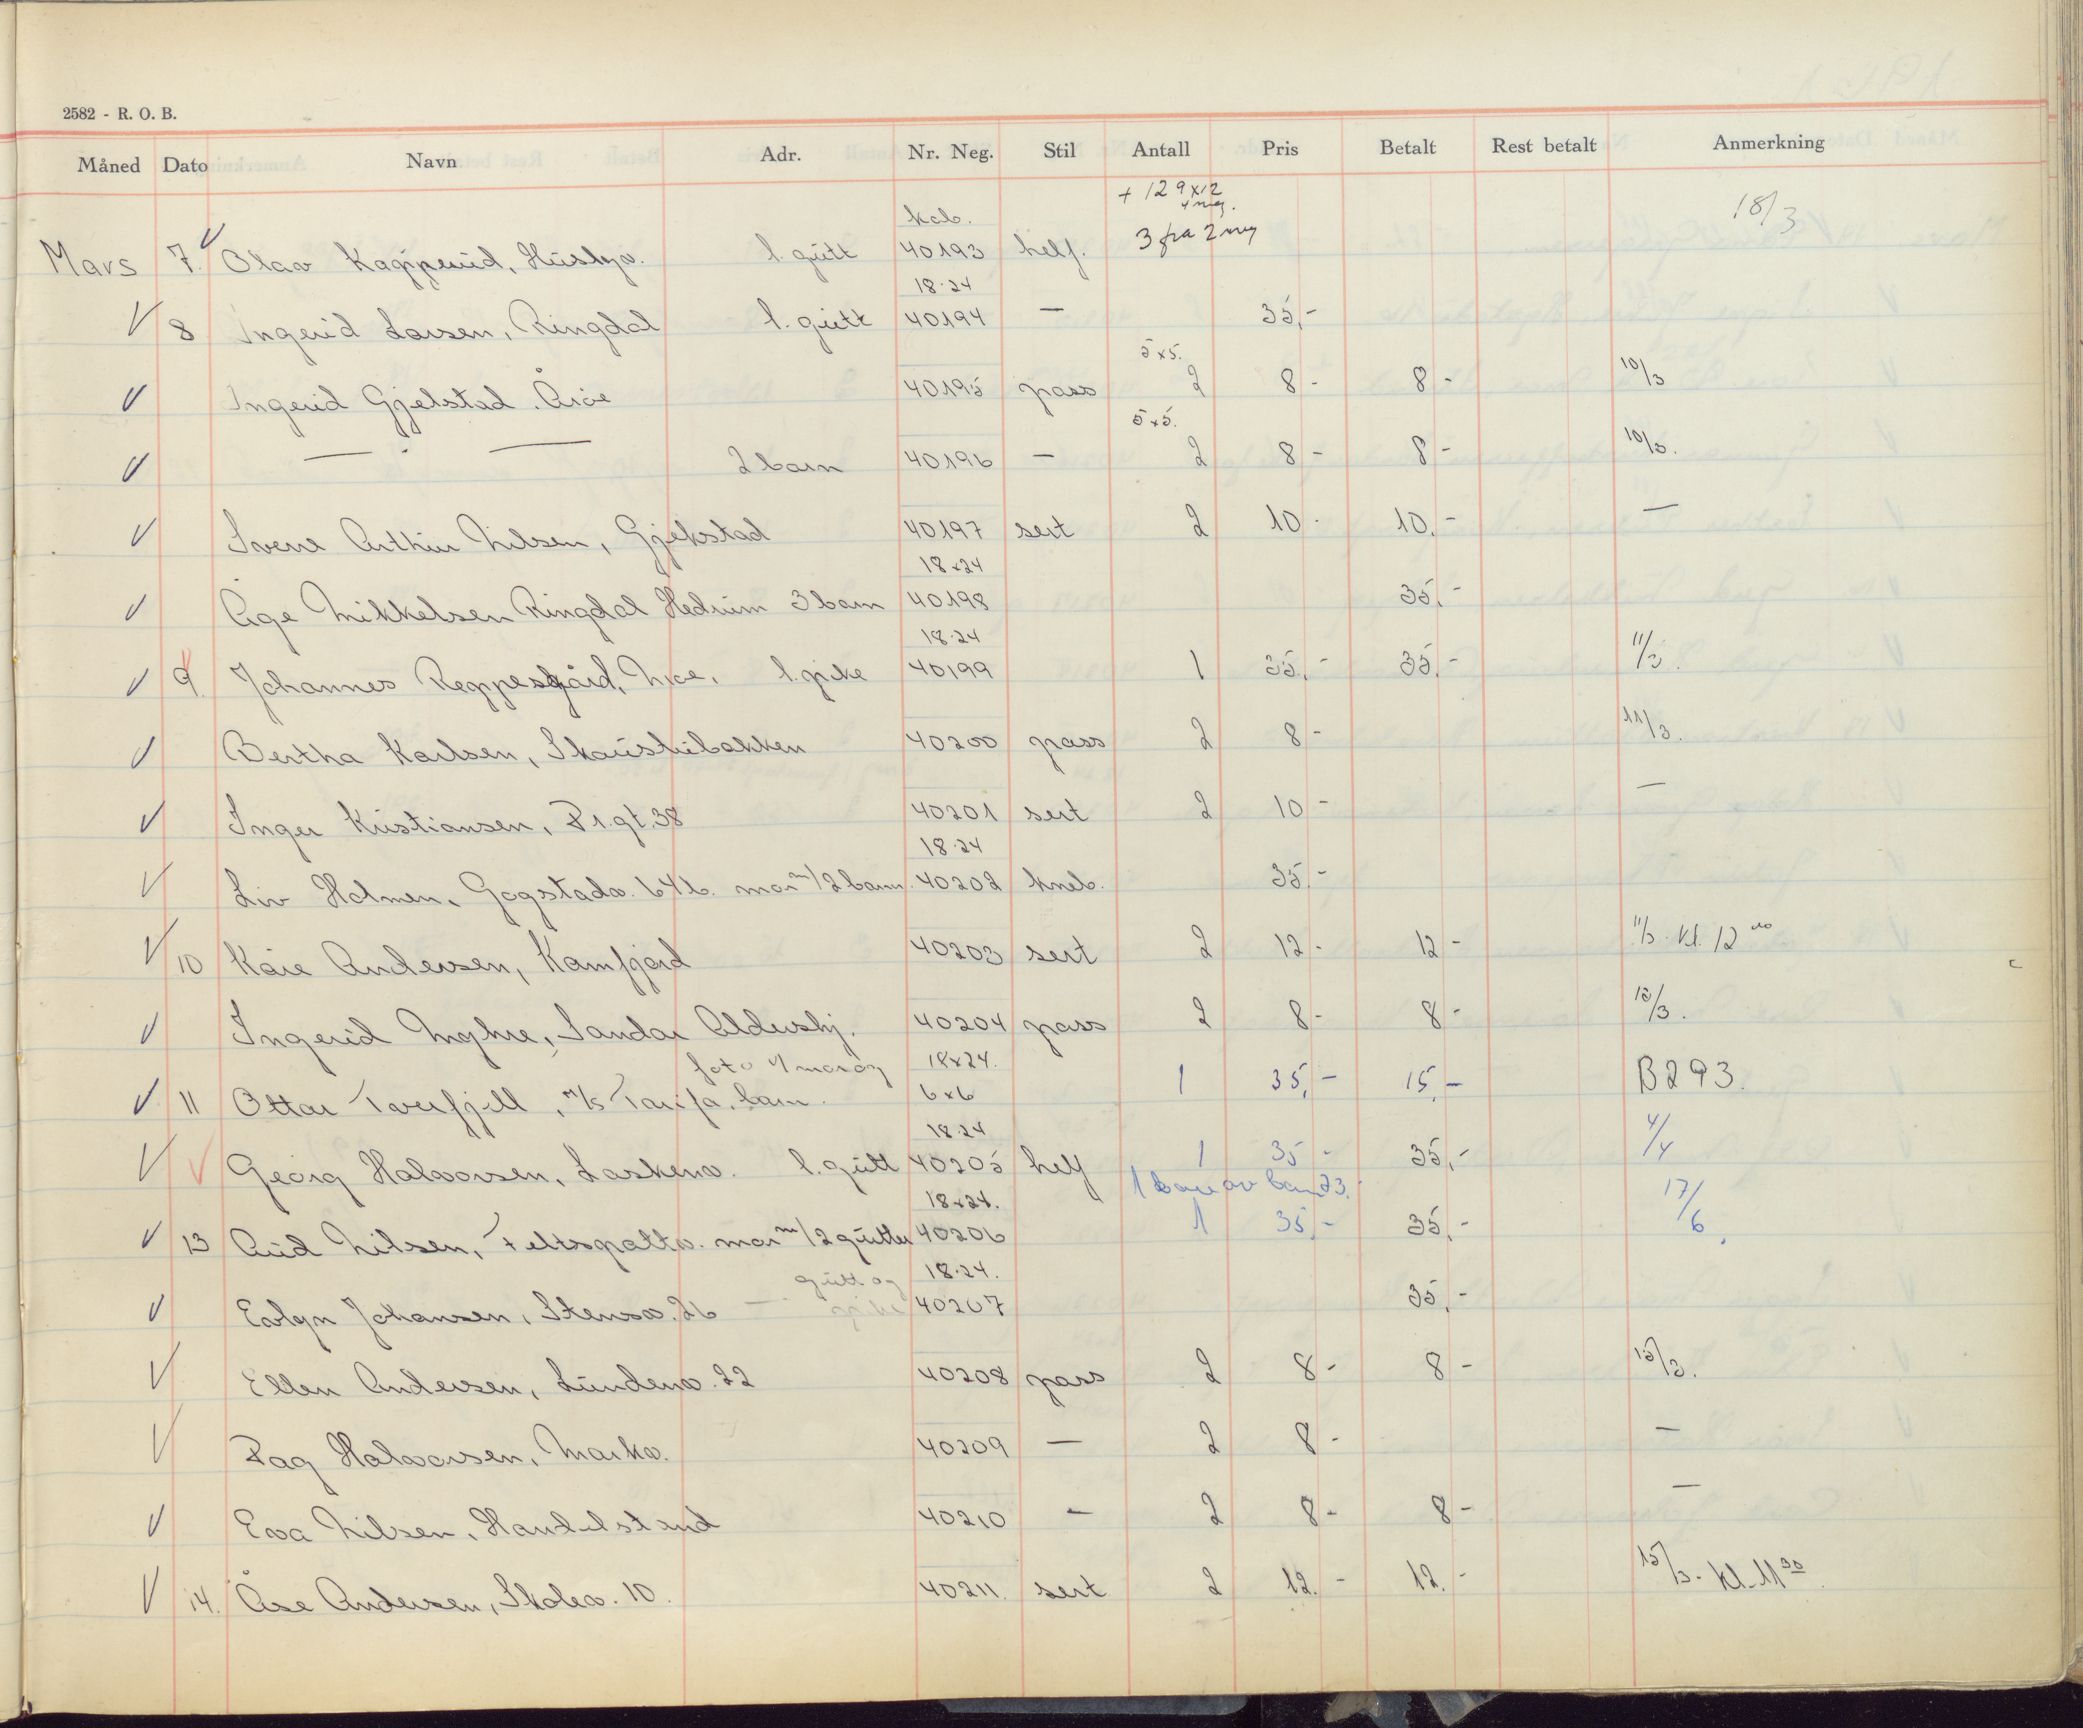 2582 - R. O. B.
Måned Dato Navn Adr. Nr. Neg. Stil Antall Pris Betalt Rest betalt Anmerkning
+ 12 9x12
4 neg.
kab. 18/3
Mars 7. Olav Kapperud, Husbyv. l. gutt 40193 helf. 3 fra 2 neg
18.24
8 Ingerid Larsen, Ringdal l. gutt 40194 — 35,-
5x5.
Ingerid Gjelstad. Årøe 40195 pass 2 8 - 8 - 10/3
5x5.
— " — 2 barn 40196 — 2 8 - 8 - 10/3.
Sverre Arthur Nilsen, Gjekstad 40197 sert 2 10 - 10,- —
18x24
Åge Mikkelsen Ringdal Hedrum 3 barn 40198 35,-
18.24
9. Johannes Reppesgård, l. pike 40199 1 35,- 35,- 11/3.
Bertha Karlsen, 40200 pass 2 8 - 11/3.
Inger Kristiansen, Pr.gt. 38 40201 sert 2 10 - —
18.24
Liv Holmen, Gogstadv. 64b. mor m/2 barn. 40202 kneb. 35,-
10 Kåre Andersen, Kamfjord 40203 sert 2 12 - 12 - 11/3. kl. 12 00
Ingerid Myhre, Sandar Aldershj. 40204 pass 2 8 - 8 - 10/3.
foto 4 mor og 18x24.
11 Ottar Tverfjell, M/S Tarifa. barn. 6x6 1 35,- 15,- B293.
18.24
Georg Halvorsen, Laskenv. l. gutt 40205 helf 1 35 - 35,- 4/4
1 bare av barn 23.
18x24.
13 Aud Nilsen, Feltspattv. mor m/2 gutter 40206 1 35,- 35,- 17/6.
gutt og 18.24.
Evlyn Johansen, Stensv. 26 — pike 40207 35,-
Ellen Andersen, Lundenv. 22 40208 pass 2 8 - 8 - 13/3.
Dag Halvorsen, Markv. 40209 — 2 8 - —
Eva Nilsen, Handelstand 40210 — 2 8 - 8 - —
14. Åse Andersen, Skolev. 10. 40211 sert 2 12. - 12. - 15/3. kl. 11 30